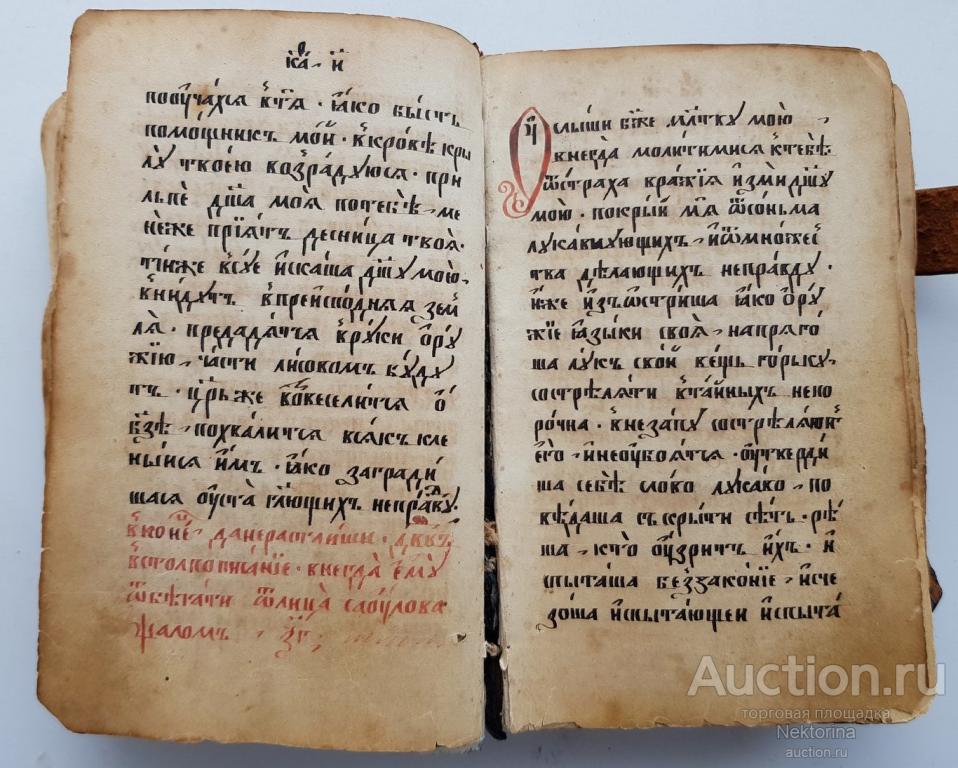 к҃а · й
поꙋча́хсѧ в̾тѧ̀ · ꙗ҆́ко бы́сть
помощникъ мо́й · в̾кровѣ̀ кры
лꙋ̀ твоє́ю возра́дꙋюсѧ · при
льпѐ дш҃а моѧ̀ потебѣ̀ · ме
не́же прїѧ́тъ десни́ца твоѧ̀ ·
ті́иже всꙋ́е и҆ска́ша дш҃ꙋ мою̀
вни́дꙋтъ в̾преиспо́днѧѧ зем
лѧ̀ · предадѧ́тсѧ в̾рꙋки ѻ҆рꙋ
жїю · ча́сти лисовомъ бꙋ́дꙋ
тъ · цр҃ьже возвесели́тсѧ ѻ҆
бз҃ѣ · похва́литсѧ всѧ́къ кле
ны́исѧ и҆́мъ · ꙗ҆́ко загради́
шасѧ ᲂу҆ста̀ гл҃ющихъ непра́вдꙋ ·
в̾коне́ц̾ данерастлиши · дв҃дъ
в̾столпописа́нїе · внегда̀ є҆мꙋ̀
ѿбѣга́ти ѿлица̀ саꙋ́лова
ѱалом̾ · ѯ҃г ·
Оу҆слы́ши бж҃е мл҃твꙋ мою̀
внегда̀ молитимисѧ к̾тебѣ̀
ѿстра́ха вра́жїѧ и҆зми дш҃ꙋ
мою̀ · покры́й мѧ̀ ѿсо́ньма
лꙋка́внꙋющихъ · и҆ѿмно́жес
тва дѣ́лающихъ непра́вдꙋ ·
и҆́же и҆зъѡстри́ша ꙗ҆́ко ѻ҆рꙋ́
жїе ꙗ҆зы́ки своѧ̀ · напрѧго́
ша лꙋ́къ сво́й ве́щь го́рькꙋ ·
сострѣлѧ́ти в̾та́йныхъ непо
ро́чна · внеза́пꙋ сострѣлѧ́ют̾
є҆го̀ · и҆неᲂубоѧ́тсѧ · ᲂу҆тверди́
ша себѣ̀ сло́во лꙋка́во · по
вѣ́даша съкры́ти сѣ́ть · рѣ́
ша · кто̀ ᲂу҆́зритъ и҆́хъ · и҆
спыта́ша беззако́нїе · и҆сче
зо́ша и҆спыта́ющеи и҆спыта́
Auction.ru
торговая площадка
Nektorina
auction.ru